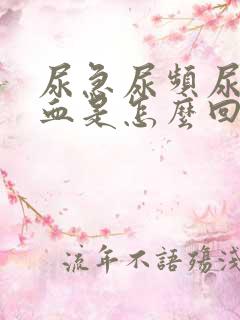 尿急尿頻尿
血是怎麼回
流年不語殤淺